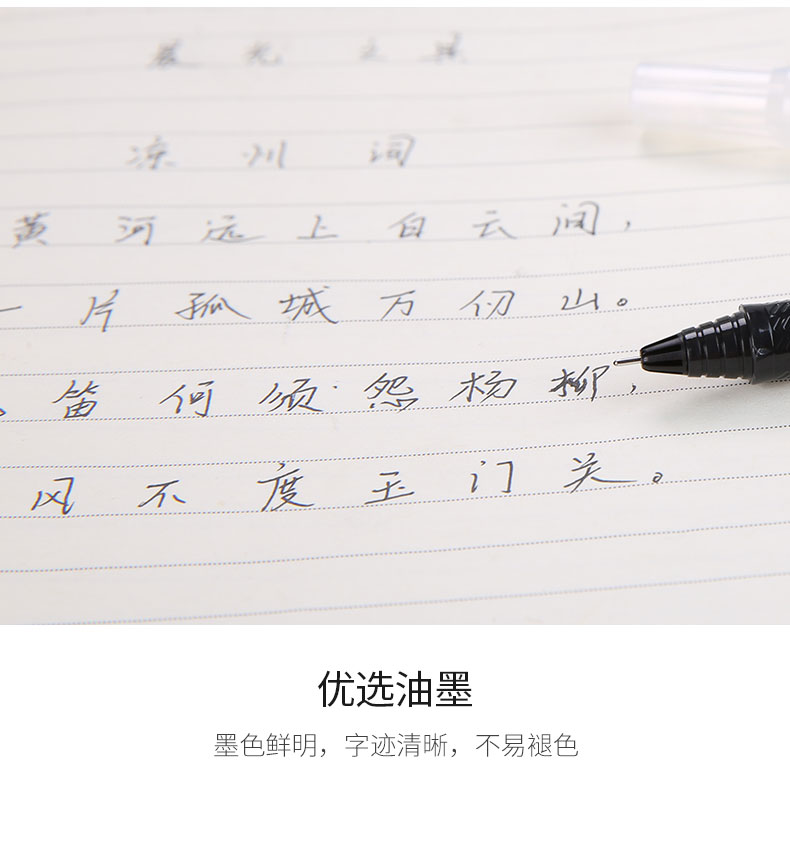 凉州词
黄河远上白云间，
一片孤城万仞山。
笛何须怨杨柳，
风不度玉门关。
优选油墨
墨色鲜明，字迹清晰，不易褪色